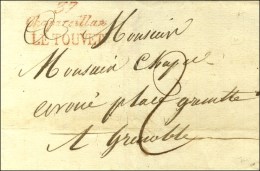 37
Chapareillan
LE TOUVET
Monsieur
Monsieur Chapel
avoué place grenette
A Grenoble
2